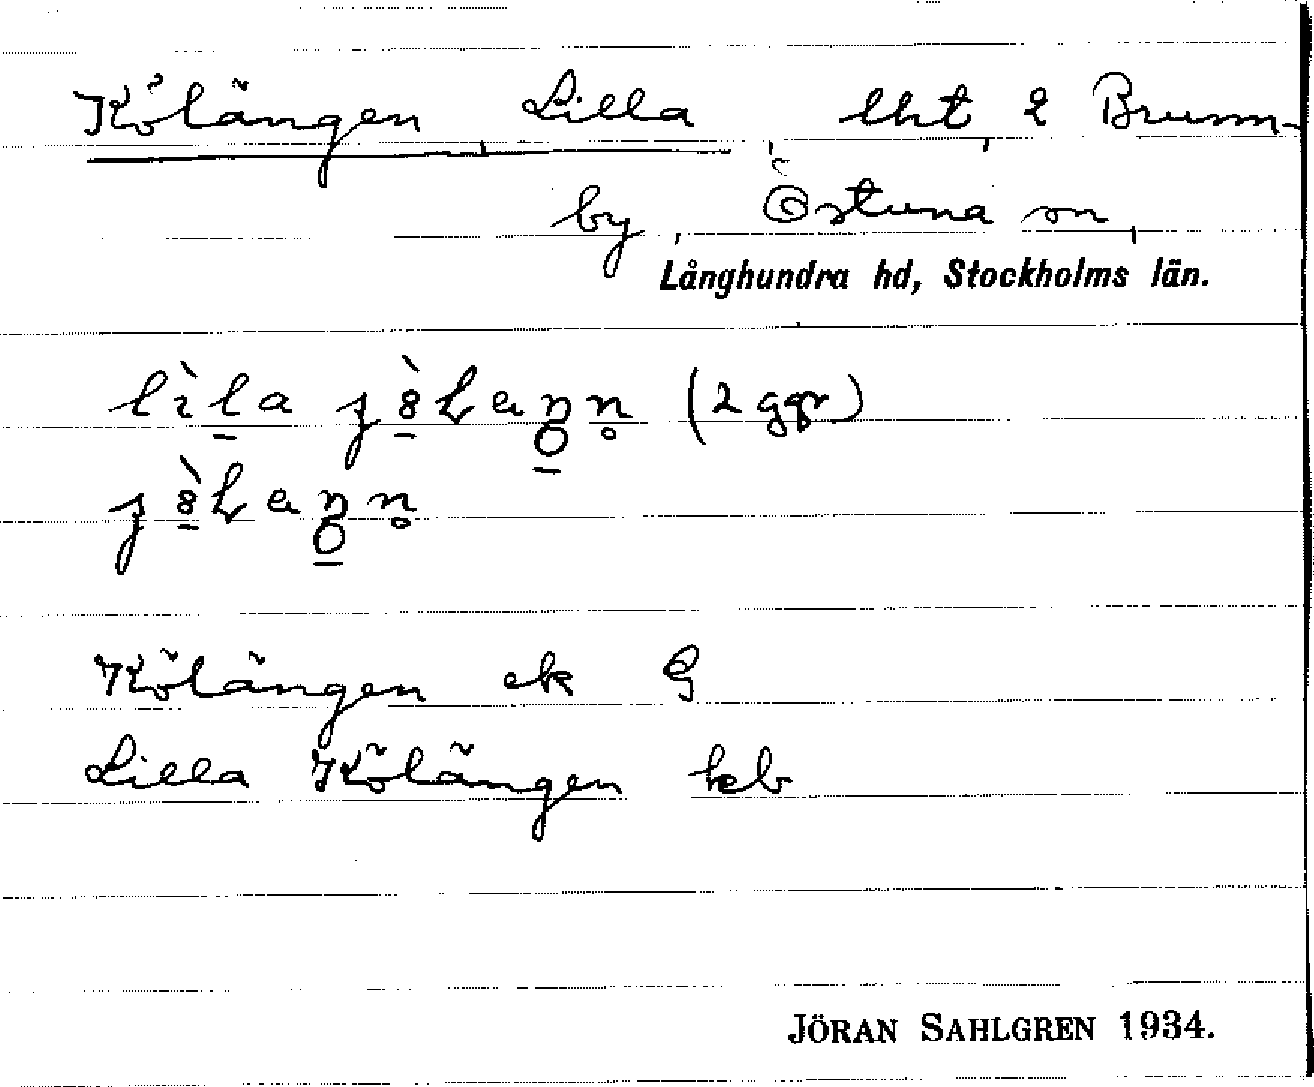 Kölängen, Lilla, lht, 2 Brunn-
by, Östuna sn,
Långhundra hd, Stockholms län.
(2 ggr)
Kölängen ek G
Lilla Kölängen kb
JÖRAN SAHLGREN 1934.